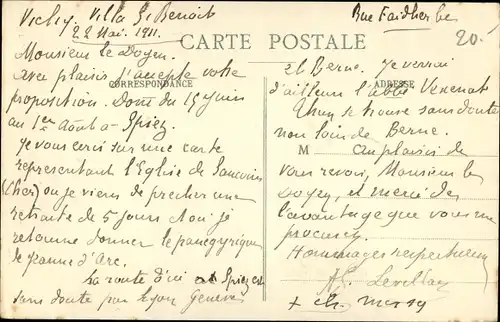 Vichy, Villa St Benoit
22 Mai 1911.
Rue Faidherbe
20.-
CARTE POSTALE
Monsieur le Doyen.
avec plaisir j'accepte votre
CORRESPONDANCE
proposition. Donc du 15 juin
au 1er Août à Spiez
Je vous écris sur une carte
représentant l'Eglise de Sancoins
(Cher) où je viens de prêcher une
retraite de 5 jours &
retourne donner le panégyrique
de Jeanne d'Arc.
La route d'ici à Spiez est
sans doute par Lyon Genève
et Berne. Je verrai
ADRESSE
d'ailleurs l'abbé
Thun se trouve sans doute
non loin de Berne.
M
au plaisir de
vous revoir, Monsieur le
Doyen, et merci de
l'avantage que vous me
procurez.
Hommages respectueux